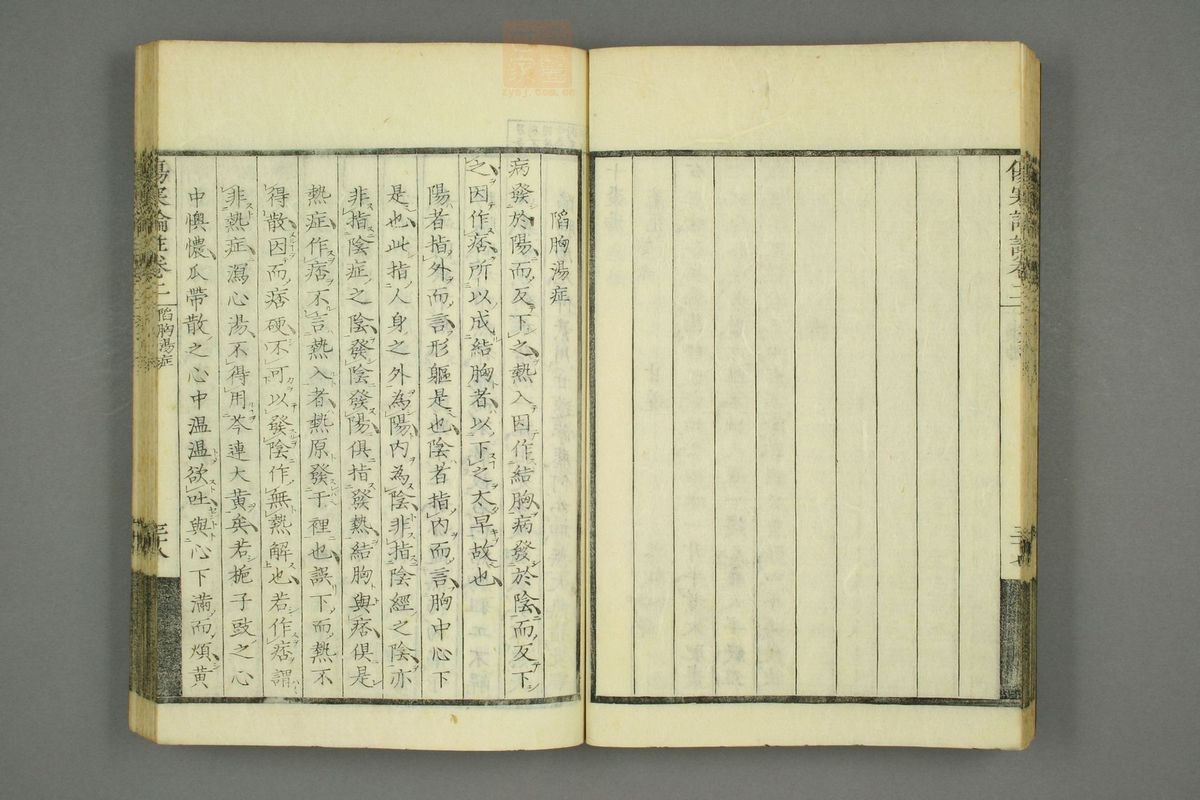 陷胸湯症
病發於陽而反下之熱入因作結胸病發於陰而反下
之因作痞所以成結胸者以下之太早故也
陽者指外而言形軀是也陰者指内而言胸中心下
是也此指人身之外為陽内為陰非指陰經之陰亦
非指陰症之陰發陰發陽俱指發熱結胸與痞俱是
熱症作痞不言熱入者熱原發于裡也誤下而熱不
得散因而痞硬不可以發陰作無熱解也若作痞謂
非熱症瀉心湯不得用芩連大黄矣若梔子豉之心
中懊憹瓜帶散之心中温温欲吐與心下滿而煩黄
傷寒論註卷二
陷胸湯症
zysj.com.cn